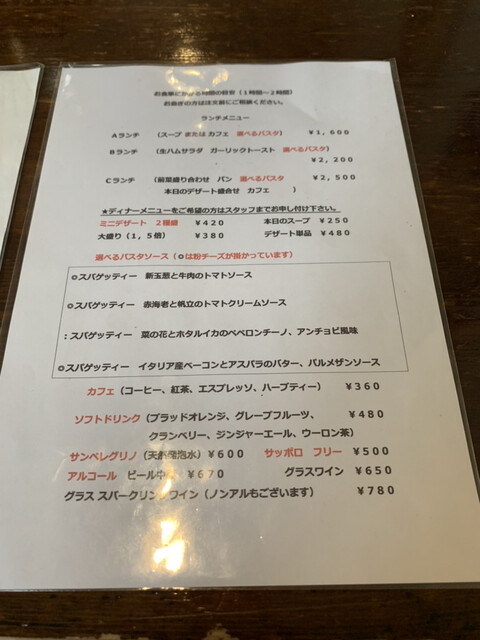 お食事にかかる時間の目安（１時間～２時間）
お急ぎの方は注文前にご相談ください。
ランチメニュー
Ａランチ　（スープ または カフェ　選べるパスタ）　￥１，６００
Ｂランチ　（生ハムサラダ　ガーリックトースト　選べるパスタ）
￥２，２００
Ｃランチ　（前菜盛り合わせ　パン　選べるパスタ　￥２，５００
本日のデザート盛合せ　カフェ　　）
★ディナーメニューをご希望の方はスタッフまでお申し付け下さい。
ミニデザート　２種盛　￥４２０　　本日のスープ　￥２５０
大盛り（１，５倍）　￥３８０　　デザート単品　￥４８０
選べるパスタソース（◎は粉チーズが掛かっています）
◎スパゲッティー　新玉葱と牛肉のトマトソース
◎スパゲッティー　赤海老と帆立のトマトクリームソース
：スパゲッティー　菜の花とホタルイカのペペロンチーノ、アンチョビ風味
◎スパゲッティー　イタリア産ベーコンとアスパラのバター、パルメザンソース
カフェ（コーヒー、紅茶、エスプレッソ、ハーブティー）　￥３６０
ソフトドリンク（ブラッドオレンジ、グレープフルーツ、　￥４８０
クランベリー、ジンジャーエール、ウーロン茶）
サンペレグリノ（天然発泡水）￥６００　サッポロ　フリー　￥５００
アルコール　ビール中　￥６７０　グラスワイン　￥６５０
グラス スパークリングワイン（ノンアルもございます）　￥７８０